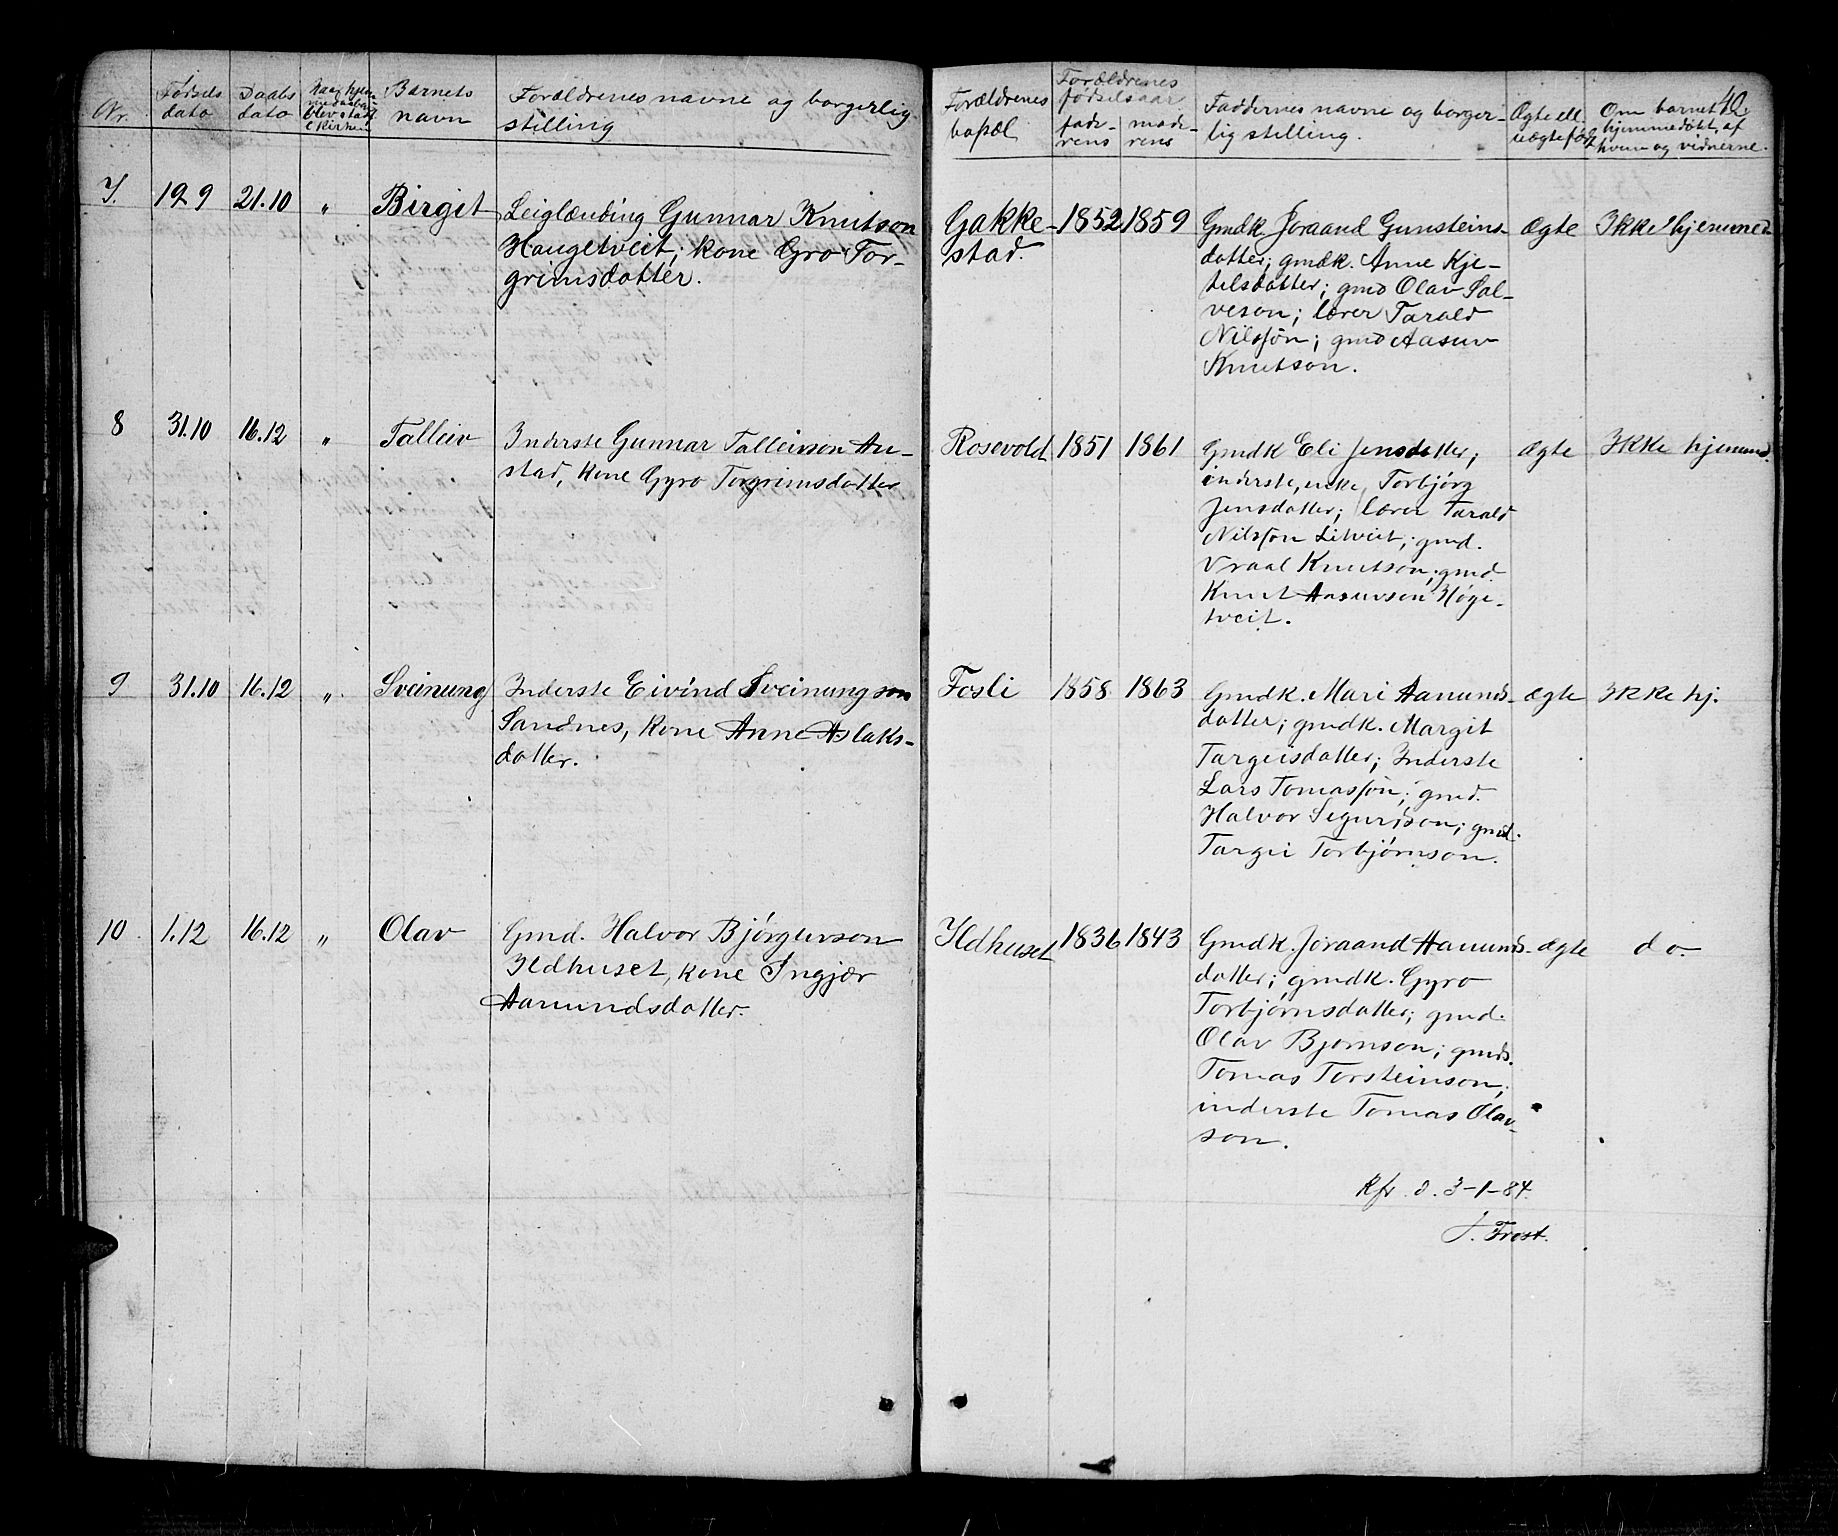 40.
Nr.
Fødsels
dato
Daabs
dato
Barnets
navn
Forældrenes navne og borgerlig
stilling
Forældrenes
bopæl
Forældrenes
fødselsaar
fade-
rens
mode-
rens
Faddernes navne og borger-
lig stilling.
Ægte ell.
uægte født
Om barnet er
hjemmedøbt, af
hvem og vidnerne.
7.
19 9
21.10
"
Birgit
Leiglænding Gunnar Knutson
Haugetveit; kone Gyro Tor-
grimsdatter.
Gakke-
stad.
1852
1859
Gmdk. Joraand Gunsteins-
datter; gmdk. Anne Kje-
telsdatter; gmd Olav Sal-
veson; lærer Tarald
Nilssøn; gmd Aasuv
Knutson.
ægte
Ikke hjemmed
8
31.10
16.12
"
Talleiv
Inderste Gunnar Talleivson Au-
stad, kone Gyro Torgrimsdatter
Rosevold
1851
1861
Gmdk Eli Jensdatter;
inderste, enke, Torbjørg
Jensdatter; lærer Tarald
Nilssøn Litveit; gmd.
Vraal Knutson; gmd.
Knut Aasuvson Høge-
tveit.
ægte
Ikke hjemmd.
9
31.10
16.12
"
Sveinung
Inderste Eivind Sveinungson
Sandnes, kone Anne Aslaks-
datter.
Fosli
1858
1863
Gmdk. Mari Aamunds-
datter; gmdk. Margit
Targeisdatter; Inderste
Lars Tomassøn; gmd.
Halvor Sigurdson; gmd.
Targei Torbjørnson.
ægte
Ikke hj.
10
1.12
16.12
"
Olav
Gmd. Halvor Bjørgulvson
Ildhuset, kone Ingjær
Aamundsdatter.
Ildhuset
1836
1843
Gmdk. Joraand Aamunds-
datter; gmdk. Gyro
Torbjørnsdatter; gmd.
Olav Bjørnson; gmds.
Tomas Torsteinson;
inderste Tomas Olav-
son.
ægte
do.
Kfr. d. 3-1-84.
J. Frost.